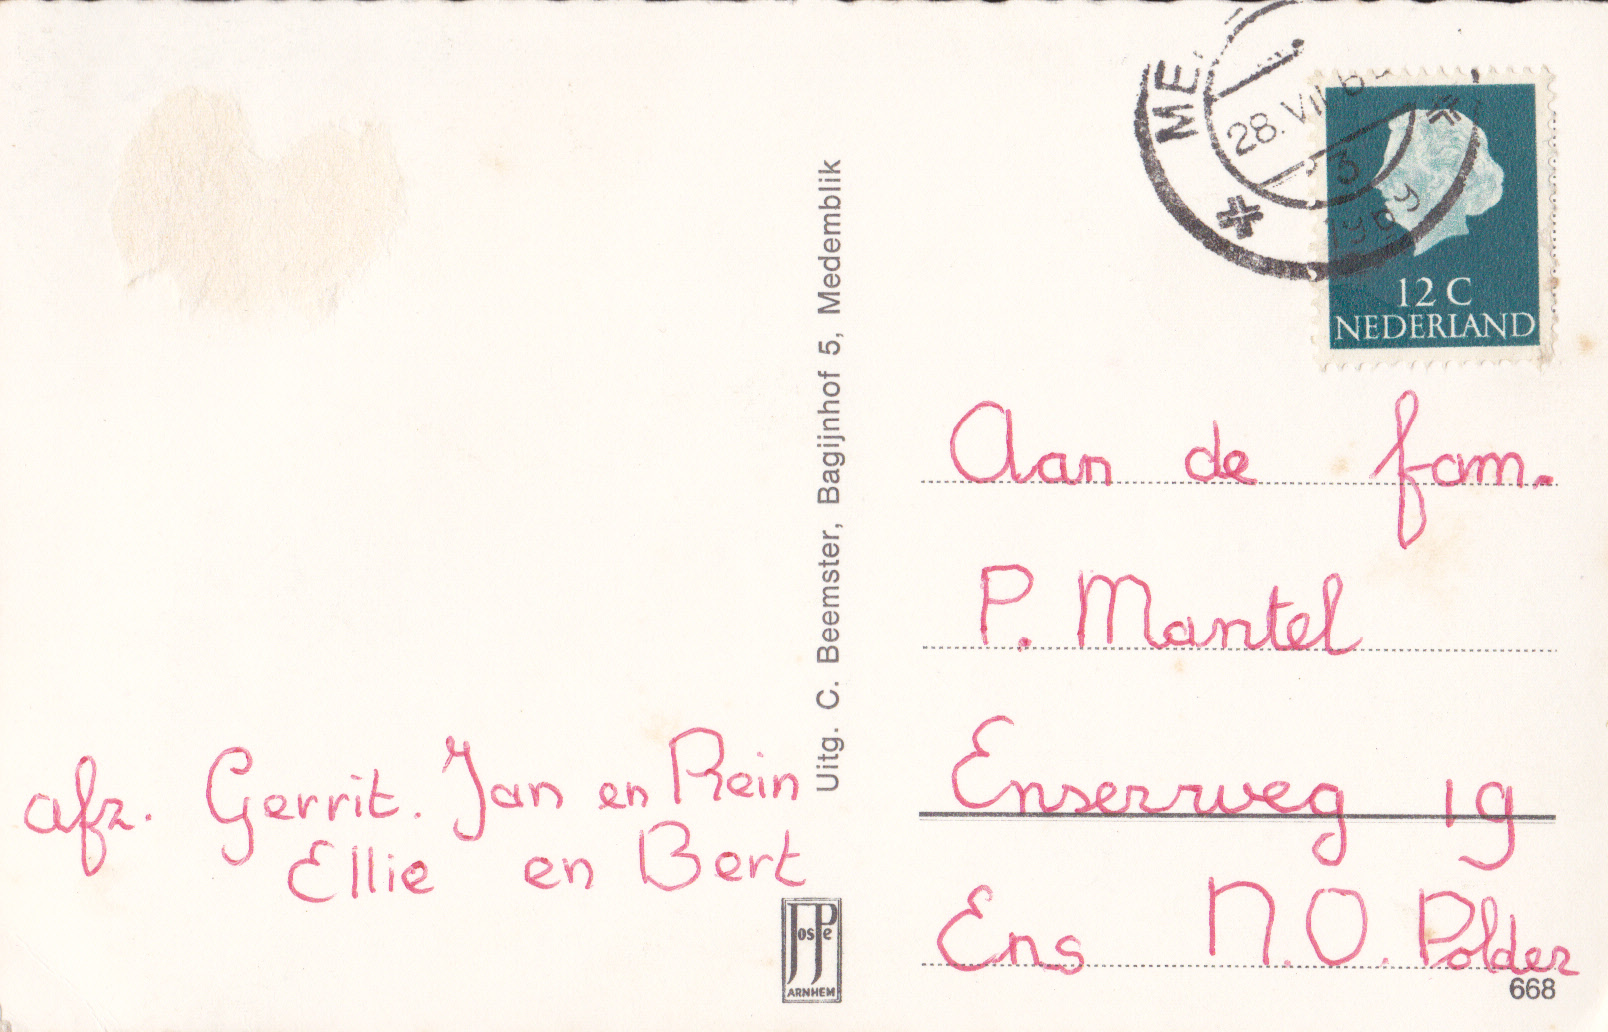 afz. Gerrit. Jan en Rein
Ellie en Bert
Uitg. C. Beemster, Bagijnhof 5, Medemblik
JosPe
ARNHEM
ME
28. VII
3
1969
12 C
NEDERLAND
Aan de fam.
P. Mantel
Enserweg 19
Ens N.O. Polder
668